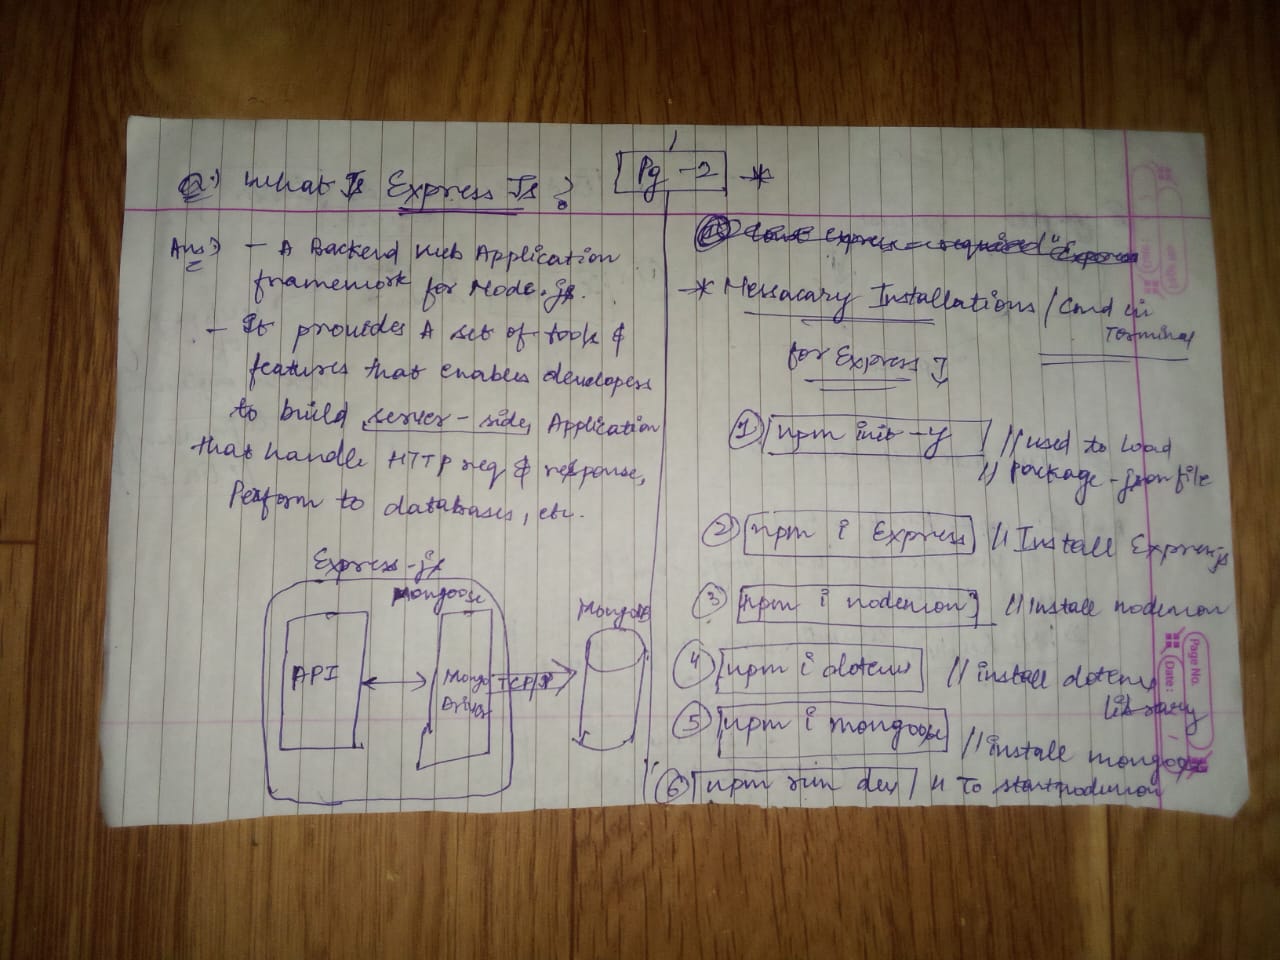 Q.) What Is Express Js ?
Pg - 2 *
Ans:) - A Backend Web Application
framework for Node.js.
- It provides A set of tools &
features that enables developers
to build server-side, Application
that handle HTTP req & response,
Perform to databases, etc.
Express-js
Mongoose
API
Mongo
Driver
TCP/IP
MongoDB
const express = required "Express
* Nessacary Installations / Cmd in
Terminal
for Express J
1 npm init -y // used to load
// package-json file
2 npm i Express // Install Express js
3 npm i nodemon // Install nodemon
4 npm i dotenv // install dotenv
library
5 npm i mongoose // install mongoose
6 npm run dev // To start nodemon
Page No.
Date: